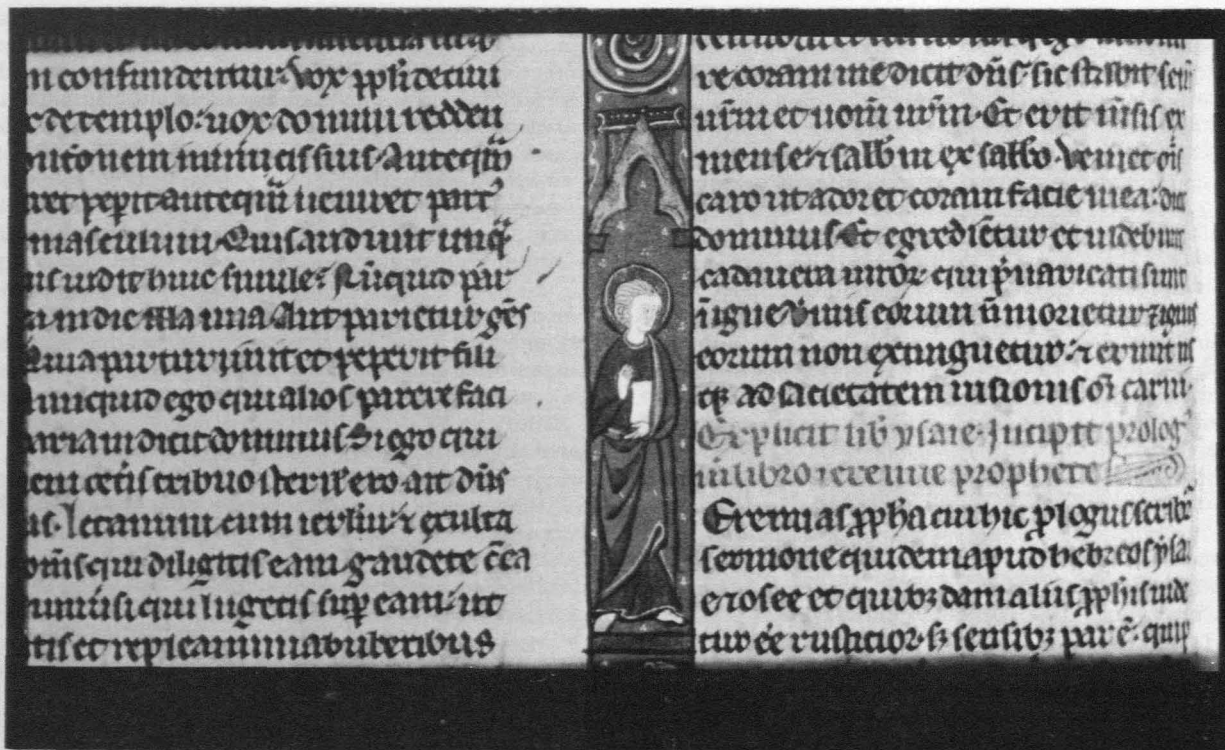 m confundentur. Vox pp̄li de ciui
de templo: uox domini redden
inimicis suis. Anteq̄m
ret pep̄it anteq̄m ueniret part᾽
masculum. Quis audiuit unq̄
uidit huic simile? Nūquid par
a in die illa una Aut parietur gēs
Quia parturiuit et peperit fili
unquid ego qui alios parere faci
ariam dicit dominus Si ego qui
em cet̄is tribuo steril᾽ ero ait dn̄s
us. letamini cum ierl̄m ⁊ exulta
om̄s qui diligitis eam gaudete c̄ ea
qui lugetis sup̄ eam. ut
tis et repleamini ab uberibus
re coram me dicit dn̄s. sic stabit
ur̄m et nom̄ ur̄m. Et erit m̄sis ex
mense. ⁊ salb̄m ex sabb̄o. Veniet oīs
caro ut adoret coram facie mea: dic
dominus. Et egredient̄ur et uidebunt
cadauera uiror᷑ qui p̄uaricati sunt
ī me Vermis eorum n̄ morietur ⁊ ignis
eorum non extinguetur. ⁊ erunt us
qꝫ ad sacietatem uisionis oī carni.
Explicit lib̄ ysaie. Incipit prolog᾽
in libro ieremie prophete
Eremias p̱ph̄a cui hic plogus scribit̄
sermone quidem apud hebreos ysa
e osee et quibꝫ dam aliis p̱ph̄is uide
tur ē͞e rusticior. sꝫ sensibꝫ par ē. quip